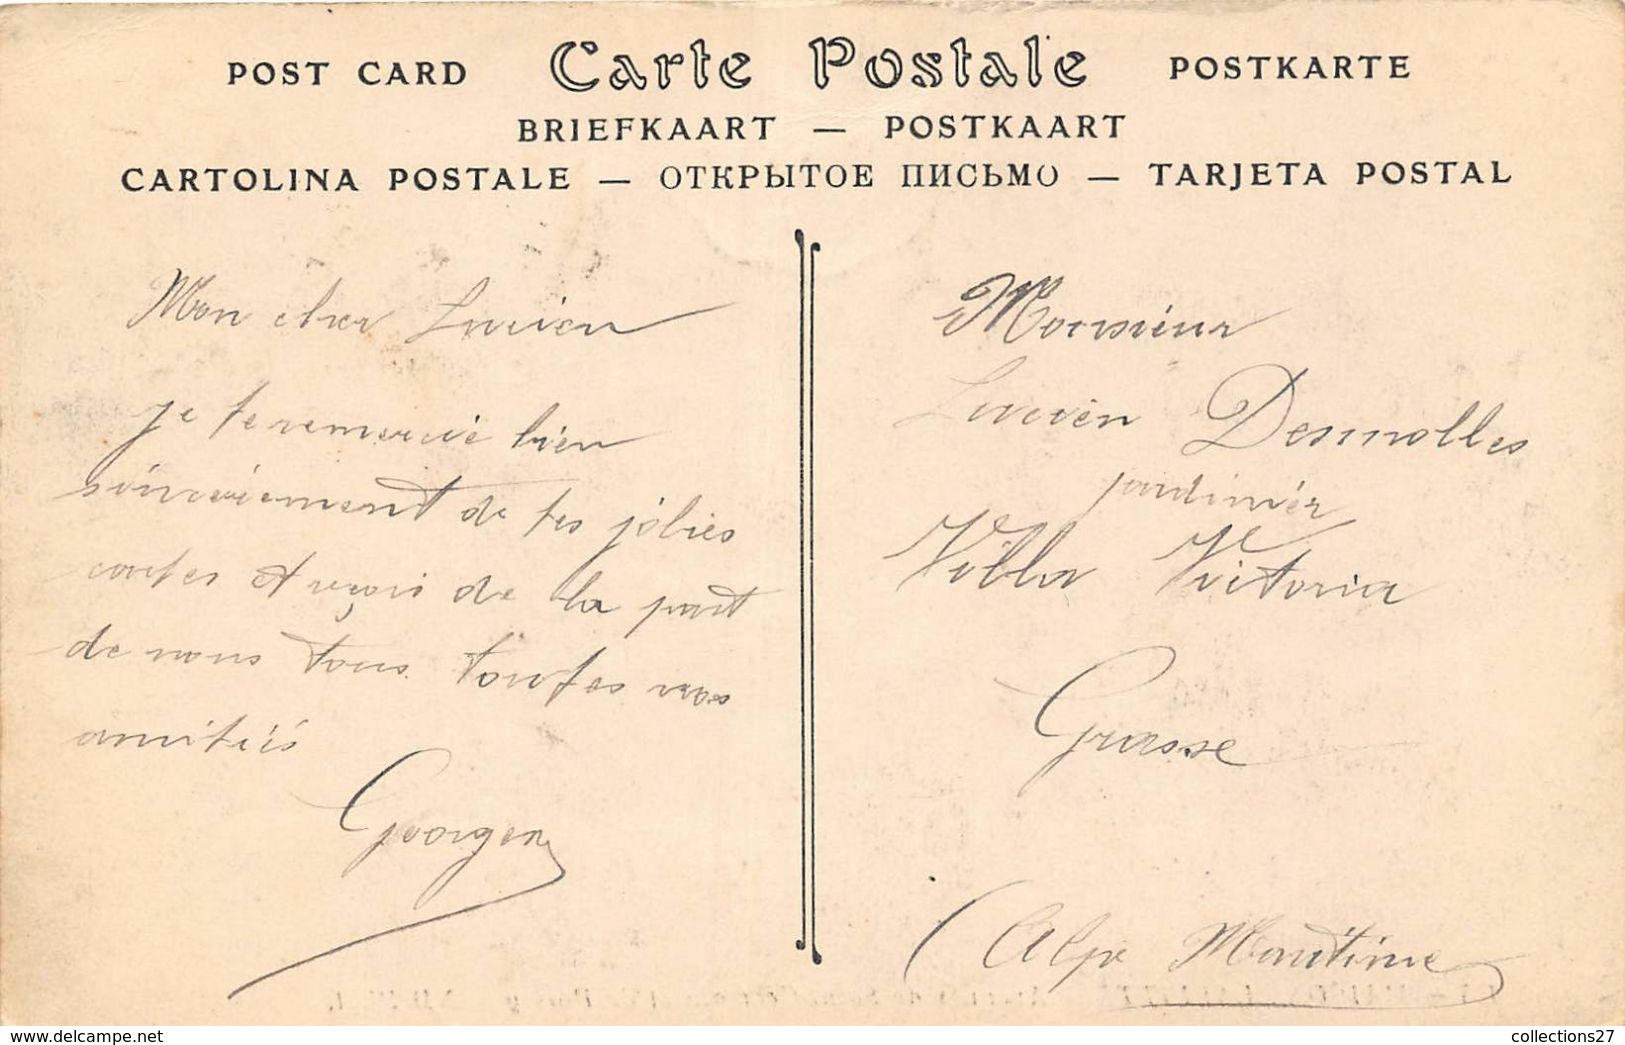 POST CARD Carte Postale POSTKARTE
BRIEFKAART — POSTKAART
CARTOLINA POSTALE — ОТКРЫТОЕ ПИСЬМО — TARJETA POSTAL
Mon cher Lucien
je te remercie bien
sincèrement de tes jolies
cartes et reçois de la part
de nous tous toutes nos
amitiés
Georges
Monsieur
Lucien Desmolles
jardinier
Villa Victoria
Grasse
(Alpe Maritime)
collections27